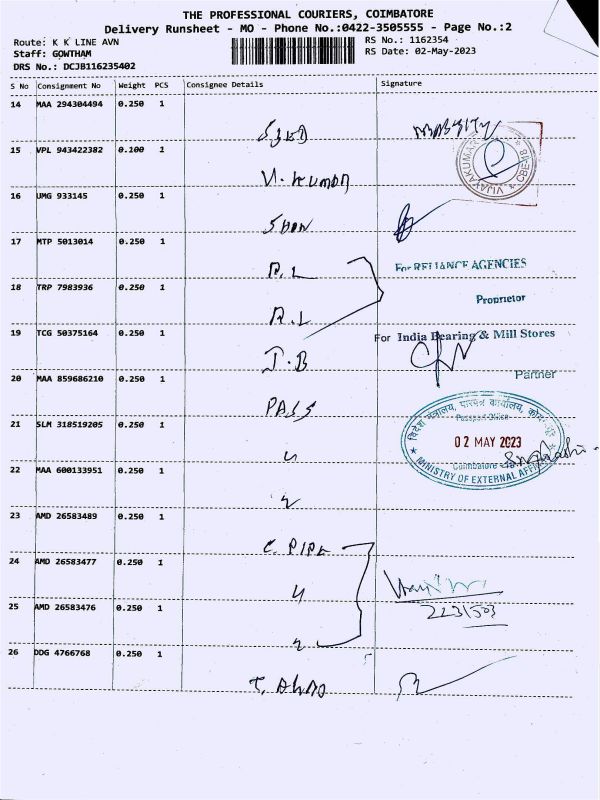 THE PROFESSIONAL COURIERS, COIMBATORE
Delivery Runsheet - MO - Phone No.:0422-3505555 - Page No.:2
Route: K K LINE AVN
RS No.: 1162354
Staff: GOWTHAM
RS Date: 02-May-2023
DRS No.: DCJB116235402
S No Consignment No Weight PCS Consignee Details Signature
14 MAA 294304494 0.250 1
15 VPL 943422382 0.100 1
V. Kumar
VIJAYAKUMAR CBE-18
16 UMG 933145 0.250 1
17 MTP 5013014 0.250 1
R.L
For RELIANCE AGENCIES
18 TRP 7983936 0.250 1
Proprietor
R.L
19 TCG 50375164 0.250 1
For India Bearing & Mill Stores
I.B
20 MAA 859686210 0.250 1
Partner
PASS
21 SLM 318519205 0.250 1
विदेश मंत्रालय, पासपोर्ट कार्यालय,
Passport Office
02 MAY 2023
Coimbatore
MINISTRY OF EXTERNAL AFFAIRS
22 MAA 600133951 0.250 1
23 AMD 26583489 0.250 1
C. PIPE
24 AMD 26583477 0.250 1
25 AMD 26583476 0.250 1
26 DDG 4766768 0.250 1